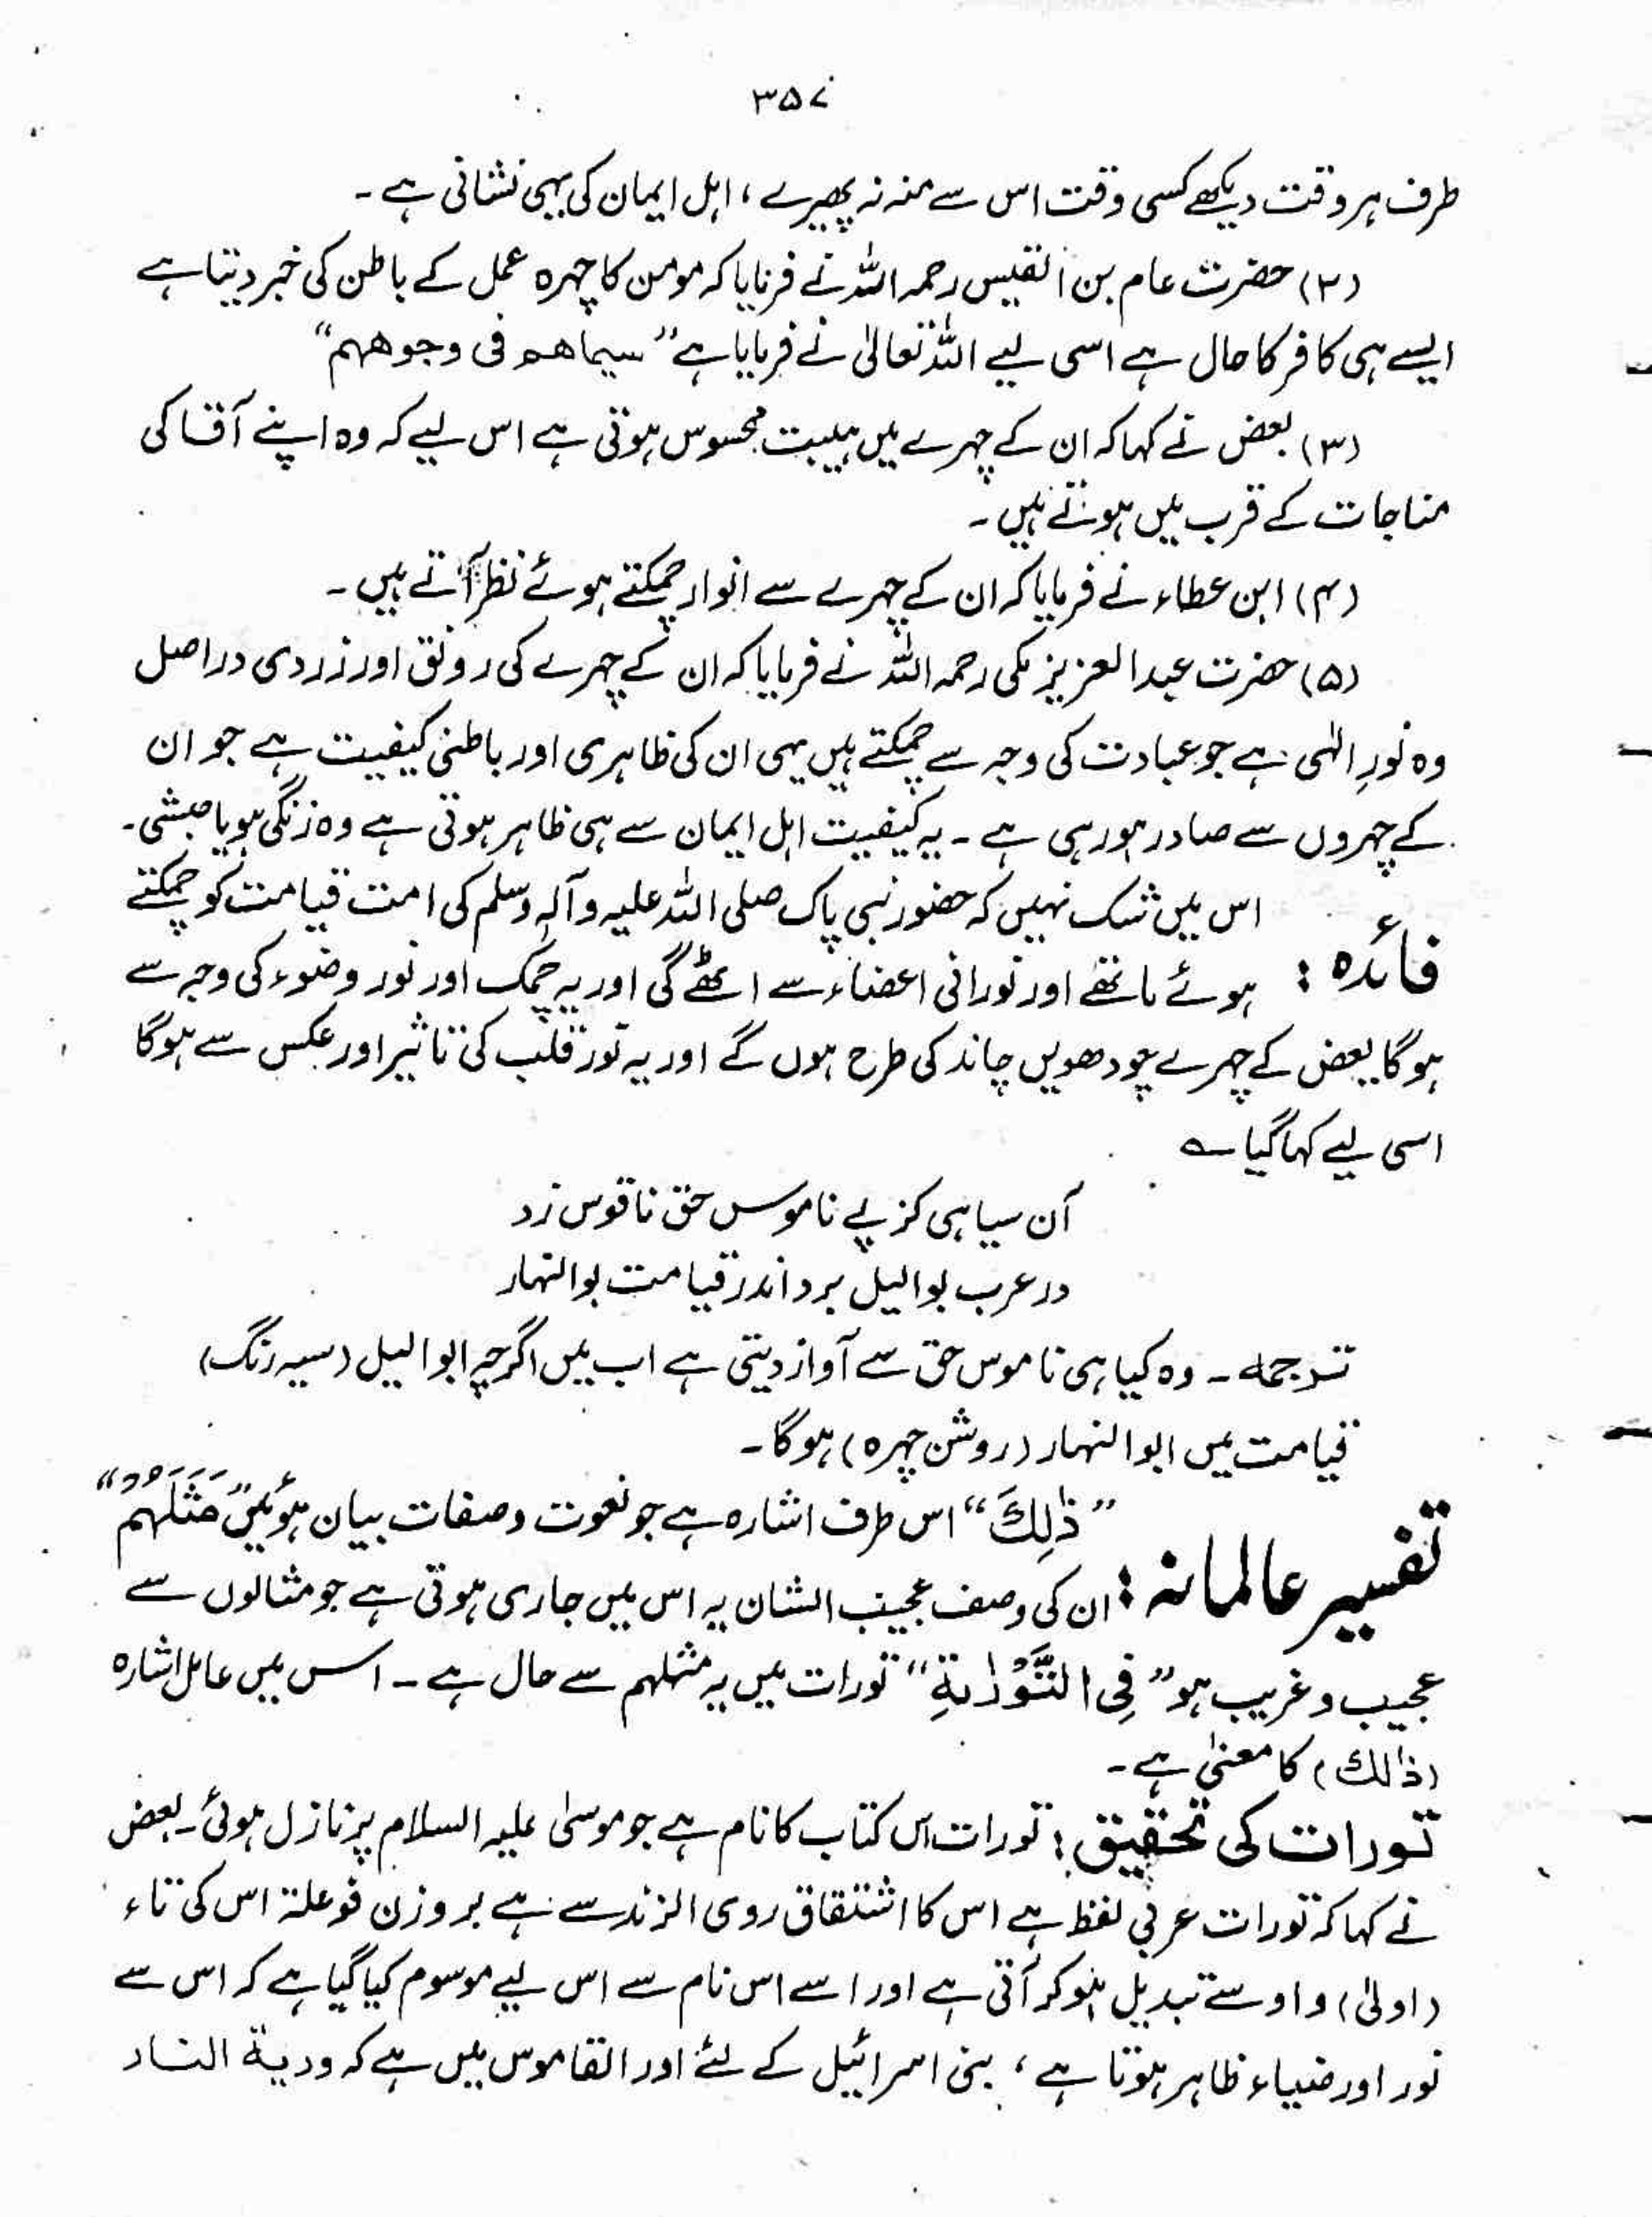 ۳۵۷
طرف ہر وقت دیکھے کسی وقت اس سے منہ نہ پھیرے ، اہل ایمان کی یہی نشانی ہے ۔
(۲) حضرت عام بن القیس رحمہ اللہ نے فرمایا کہ مومن کا چہرہ عمل کے باطن کی خبر دیتا ہے
ایسے ہی کافر کا حال ہے اسی لیے اللہ تعالیٰ نے فرمایا ہے ”سیماھم فی وجوھھم“
(۳) بعض نے کہا کہ ان کے چہرے میں ہیبت محسوس ہوتی ہے اس لیے کہ وہ اپنے آقا کی
مناجات کے قرب میں ہوتے ہیں ۔
(۴) ابن عطاء نے فرمایا کہ ان کے چہرے سے انوار چمکتے ہوئے نظر آتے ہیں ۔
(۵) حضرت عبدالعزیز مکی رحمہ اللہ نے فرمایا کہ ان کے چہرے کی رونق اور زردی دراصل
وہ نورِ الٰہی ہے جو عبادت کی وجہ سے چمکتے ہیں یہی ان کی ظاہری اور باطنی کیفیت ہے جو ان
کے چہروں سے صادر ہو رہی ہے ۔ یہ کیفیت اہل ایمان سے ہی ظاہر ہوتی ہے وہ زنگی ہو یا حبشی ۔
فائدہ : اس میں شک نہیں کہ حضور نبی پاک صلی اللہ علیہ وآلہ وسلم کی امت قیامت کو چمکتے
ہوئے ماتھے اور نورانی اعضاء سے اٹھے گی اور یہ چمک اور نور وضوء کی وجہ سے
ہوگا بعض کے چہرے چودھویں چاند کی طرح ہوں گے اور یہ نور قلب کی تاثیر اور عکس سے ہوگا
اسی لیے کہا گیا ؎
آن سیاہی کز پے ناموس حق ناقوس زد
در عرب بواللیل بود اندر قیامت بوالنہار
ترجمہ ۔ وہ کیا ہی ناموس حق سے آواز دیتی ہے اب میں اگرچہ ابوالیل (سیہ رنگ)
قیامت میں ابوالنہار (روشن چہرہ) ہوگا ۔
تفسیر عالمانہ : ”ذٰلِکَ“ اس طرف اشارہ ہے جو نعوت و صفات بیان ہوئیں ”مَثَلُہُمْ“
ان کی وصف عجیب الشان یہ اس میں جاری ہوتی ہے جو مثالوں سے
عجیب و غریب ہو ”فِی التَّوْرٰىةِ“ تورات میں یہ مثلہم سے حال ہے ۔ اس میں عامل اشارہ
(ذٰلک) کا معنیٰ ہے ۔
تورات کی تحقیق : تورات اس کتاب کا نام ہے جو موسیٰ علیہ السلام پر نازل ہوئی ۔ بعض
نے کہا کہ تورات عربی لفظ ہے اس کا اشتقاق روی الزند سے ہے بروزن فوعلۃ اس کی تاء
(اولیٰ) واو سے تبدیل ہو کر آتی ہے اور اسے اس نام سے اس لیے موسوم کیا گیا ہے کہ اس سے
نور اور ضیاء ظاہر ہوتا ہے ، بنی اسرائیل کے لئے اور القاموس میں ہے کہ وریۃ النار